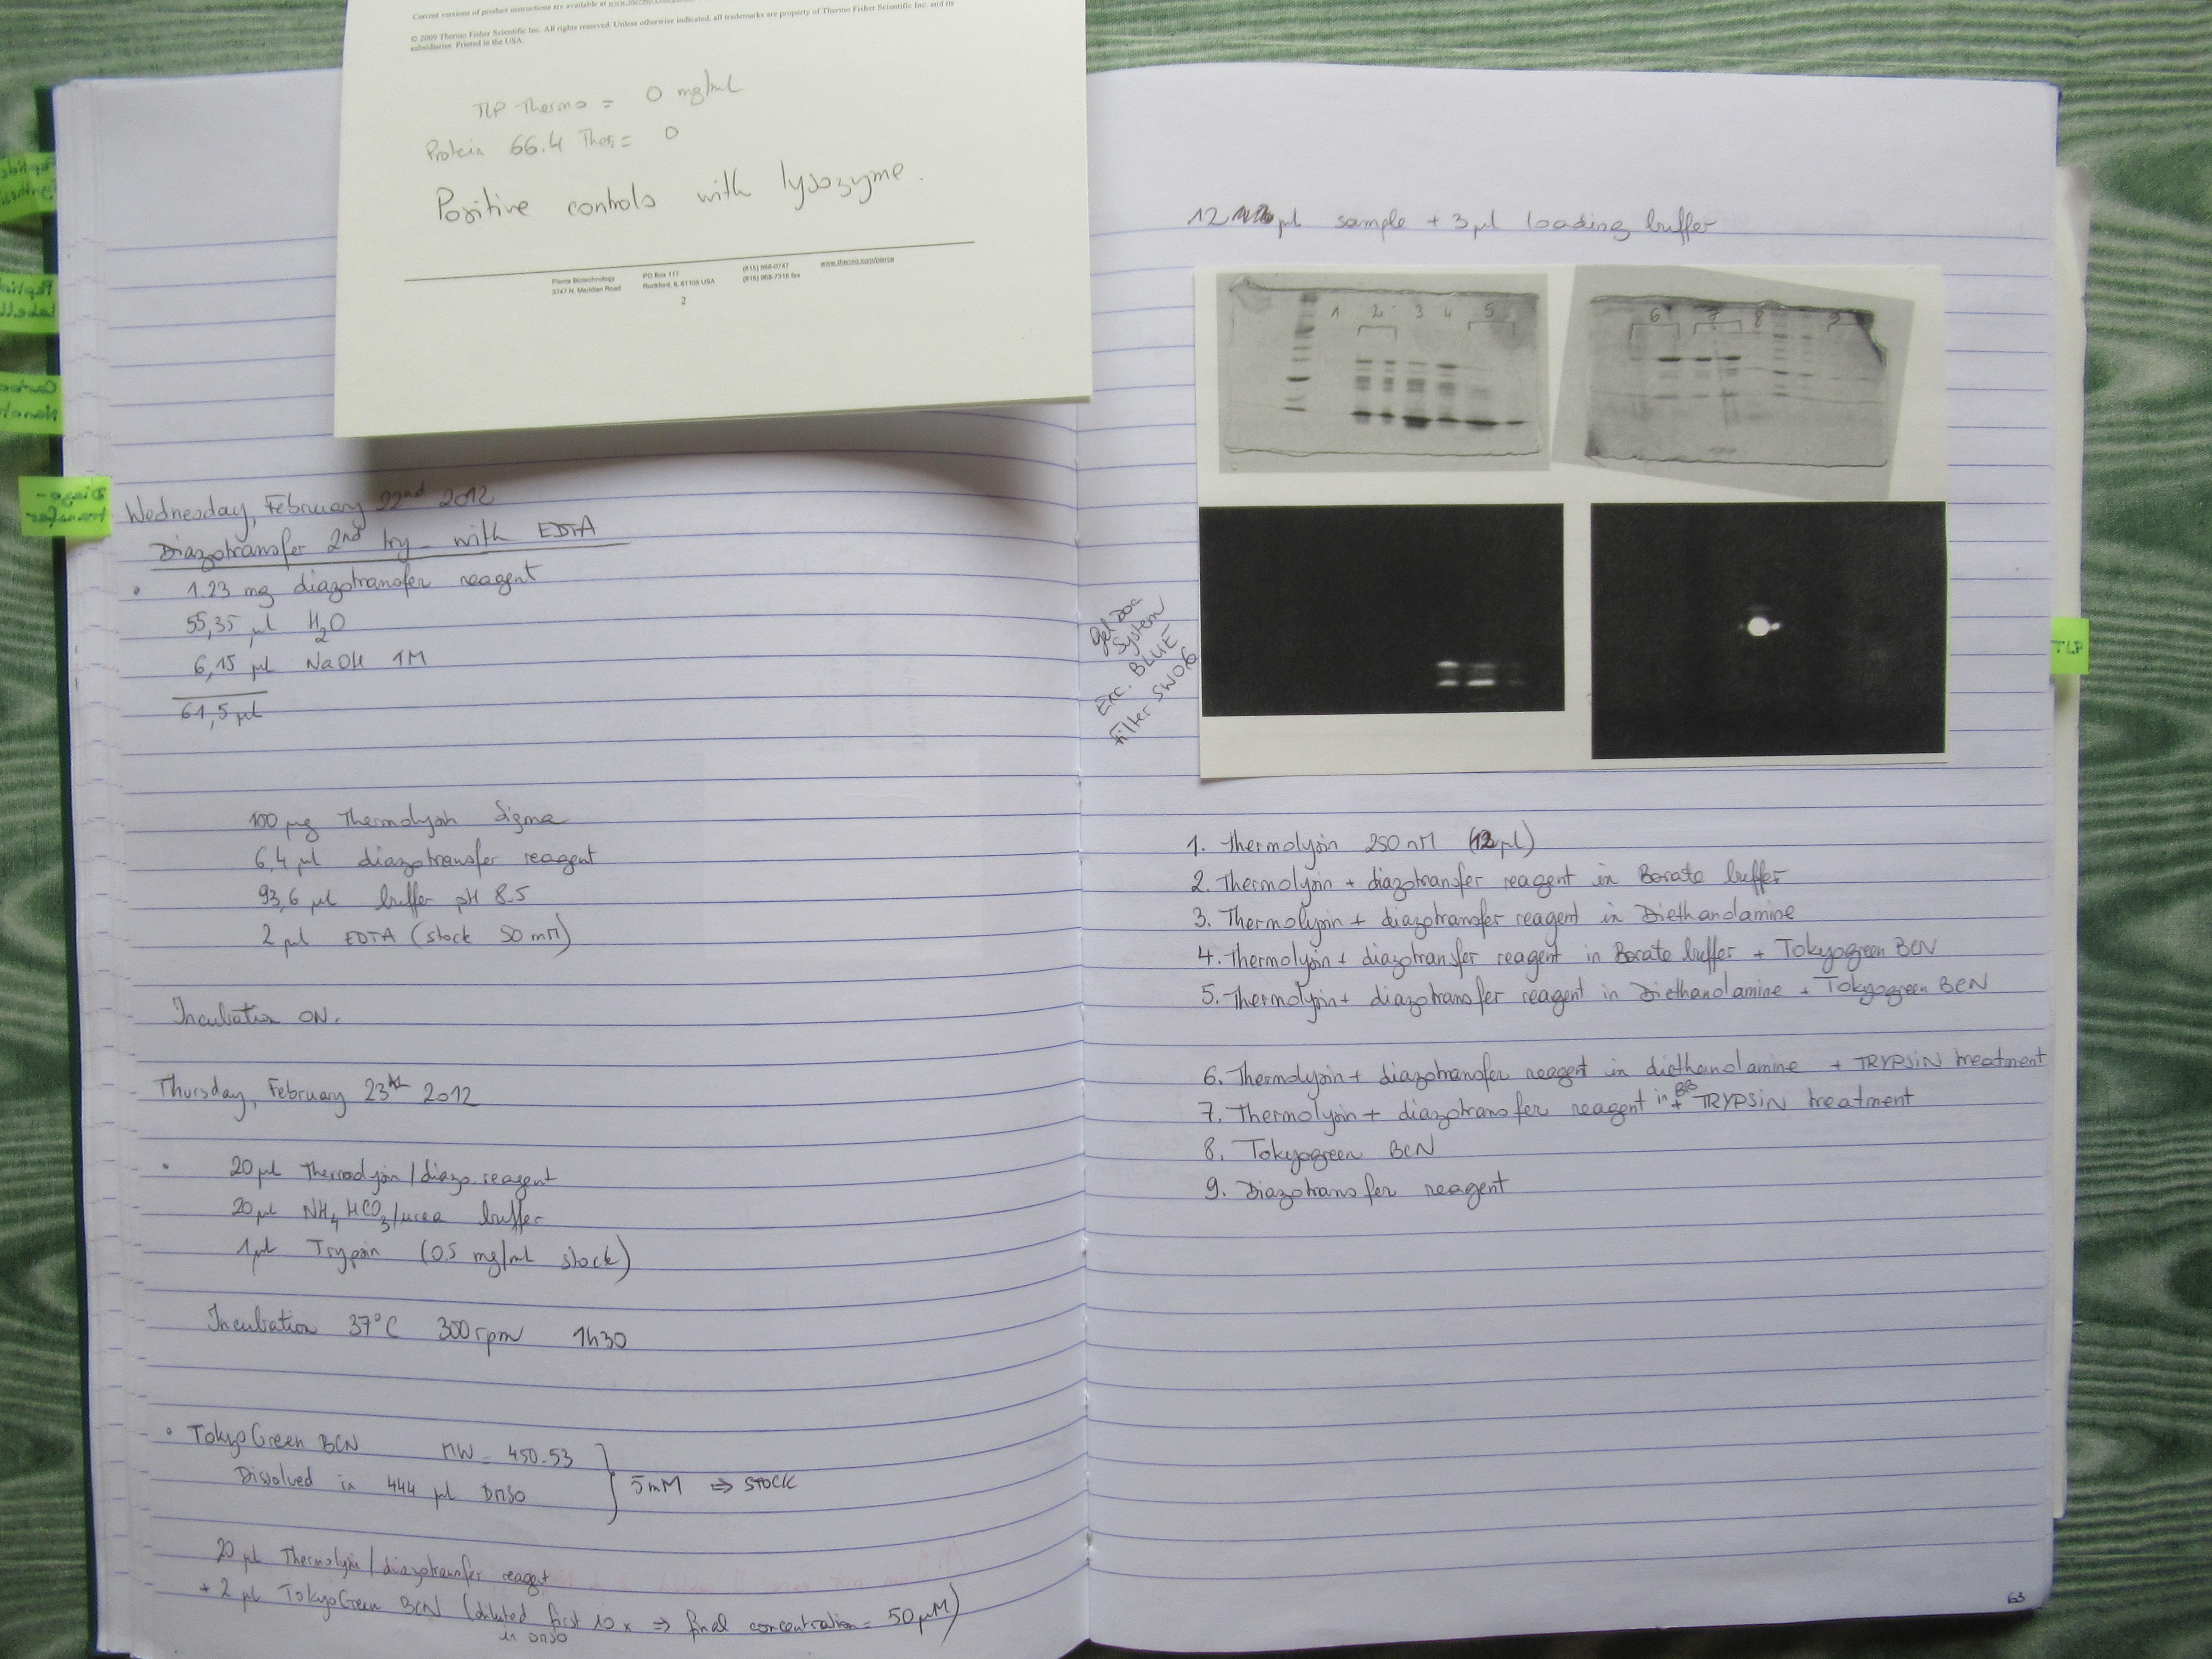 Current versions of product instructions are available at
© 2009 Thermo Fisher Scientific Inc. All rights reserved. Unless otherwise indicated, all trademarks are property of Thermo Fisher Scientific Inc. and its
subsidiaries. Printed in the USA.
TLP Thermo = 0 mg/ml
Protein 66.4 Ther = 0
Positive controls with lysozyme.
Pierce Biotechnology PO Box 117 (815) 968-0747 www.thermo.com/pierce
3747 N. Meridian Road Rockford, IL 61105 USA (815) 968-7316 fax
2
Diazo-
transfer
Wednesday, February 22nd 2012
Diazotransfer 2nd try - with EDTA
• 1.23 mg diazotransfer reagent
55,35 µl H2O
6,15 µl NaOH 1M
61,5 µl
100 µg Thermolysin Sigma
6,4 µl diazotransfer reagent
93,6 µl buffer pH 8.5
2 µl EDTA (stock 50 mM)
Incubation ON.
Thursday, February 23th 2012
• 20 µl Thermolysin/diazo. reagent
20 µl NH4HCO3/urea buffer
1 µl Trypsin (0.5 mg/ml stock)
Incubation 37°C 300 rpm 1h30
• TokyoGreen BCN MW = 450.53
Dissolved in 444 µl DMSO
5 mM ⇒ STOCK
20 µl Thermolysin/diazotransfer reagent
+ 2 µl TokyoGreen BCN (diluted first 10x ⇒ final concentration = 50 µM)
in DMSO
12 µl sample + 3 µl loading buffer
1 2 3 4 5
6 7 8 9
Gel Doc
System
Exc. BLUE
Filter SW06
TLP
1. Thermolysin 250 nM (12 µl)
2. Thermolysin + diazotransfer reagent in Borate buffer
3. Thermolysin + diazotransfer reagent in Diethanolamine
4. Thermolysin + diazotransfer reagent in Borate buffer + Tokyogreen BCN
5. Thermolysin + diazotransfer reagent in Diethanolamine + Tokyogreen BCN
6. Thermolysin + diazotransfer reagent in diethanolamine + TRYPSIN treatment
7. Thermolysin + diazotransfer reagent in BB + TRYPSIN treatment
8. Tokyogreen BCN
9. Diazotransfer reagent
63